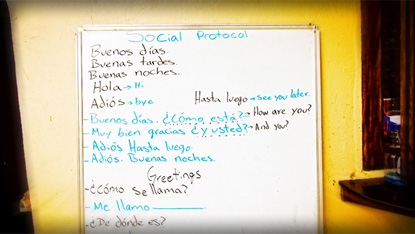 Social Protocol
Buenos días.
Buenas tardes.
Buenas noches.
Hola → Hi
Adiós → bye Hasta luego → see you later.
- Buenos días. ¿Cómo está? → How are you?
- Muy bien gracias ¿y usted? → And you?
- Adiós Hasta luego.
- Adiós. Buenas noches.
Greetings
- ¿Cómo se llama?
- Me llamo
- ¿De dónde es?